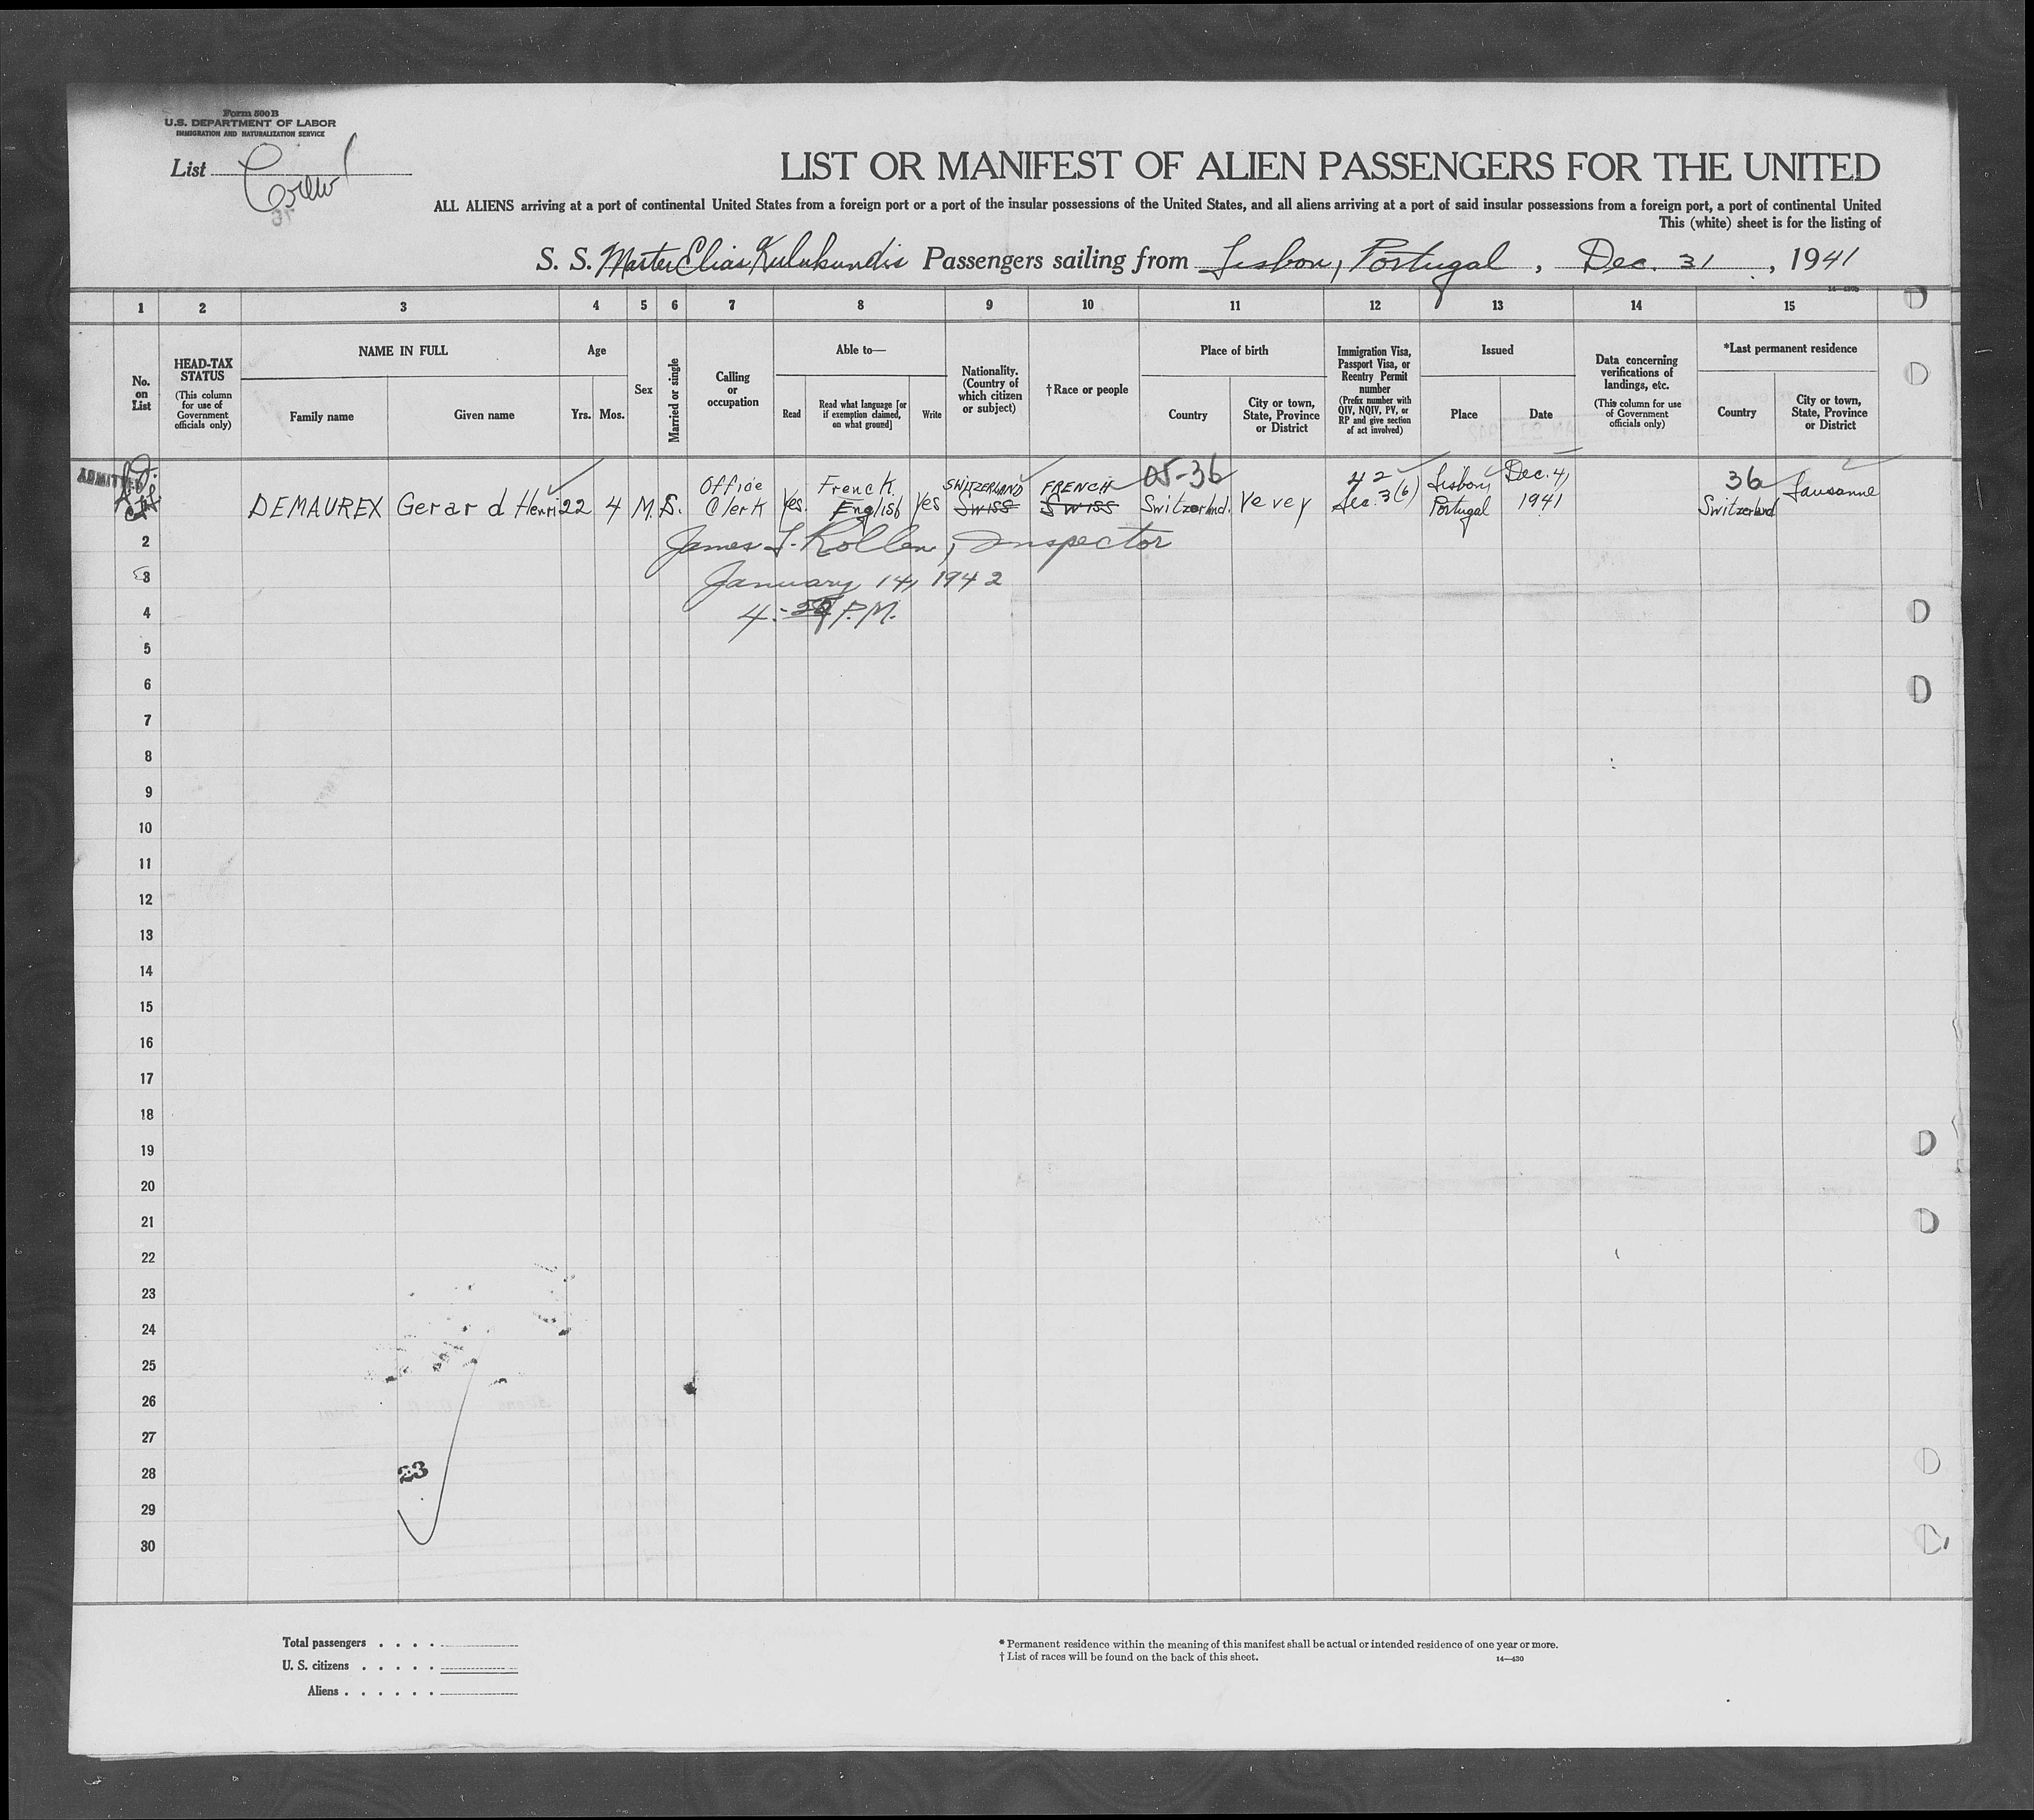 Form 500B
U.S. DEPARTMENT OF LABOR
IMMIGRATION AND NATURALIZATION SERVICE
List Crew
LIST OR MANIFEST OF ALIEN PASSENGERS FOR THE UNITED
ALL ALIENS arriving at a port of continental United States from a foreign port or a port of the insular possessions of the United States, and all aliens arriving at a port of said insular possessions from a foreign port, a port of continental United
This (white) sheet is for the listing of
S. S. Master Elias Kulukundis Passengers sailing from Lisbon, Portugal, Dec. 31, 1941
1 2 3 4 5 6 7 8 9 10 11 12 13 14 15
No. on List
HEAD-TAX STATUS
(This column for use of Government officials only)
NAME IN FULL
Family name
Given name
Age
Yrs.
Mos.
Sex
Married or single
Calling or occupation
Able to—
Read
Read what language [or if exemption claimed, on what ground]
Write
Nationality. (Country of which citizen or subject)
†Race or people
Place of birth
Country
City or town, State, Province or District
Immigration Visa, Passport Visa, or Reentry Permit number
(Prefix number with QIV, NQIV, PV, or RP and give section of act involved)
Issued
Place
Date
Data concerning verifications of landings, etc.
(This column for use of Government officials only)
*Last permanent residence
Country
City or town, State, Province or District
ADMITTED
DEMAUREX Gerard Henri 22 4 M. S. Office Clerk Yes. French English Yes SWITZERLAND Swiss FRENCH Swiss 05-36 Switzerland. Vevey 42 Sec. 3(6) Lisbon, Portugal Dec. 4, 1941 36 Switzerland Lausanne
2
James Inspector
3
January 14, 1942
4
P.M.
5
6
7
8
9
10
11
12
13
14
15
16
17
18
19
20
21
22
23
24
25
26
27
28
23
29
30
Total passengers . . . .
U. S. citizens . . . . .
Aliens . . . . . .
* Permanent residence within the meaning of this manifest shall be actual or intended residence of one year or more.
† List of races will be found on the back of this sheet.
14—430